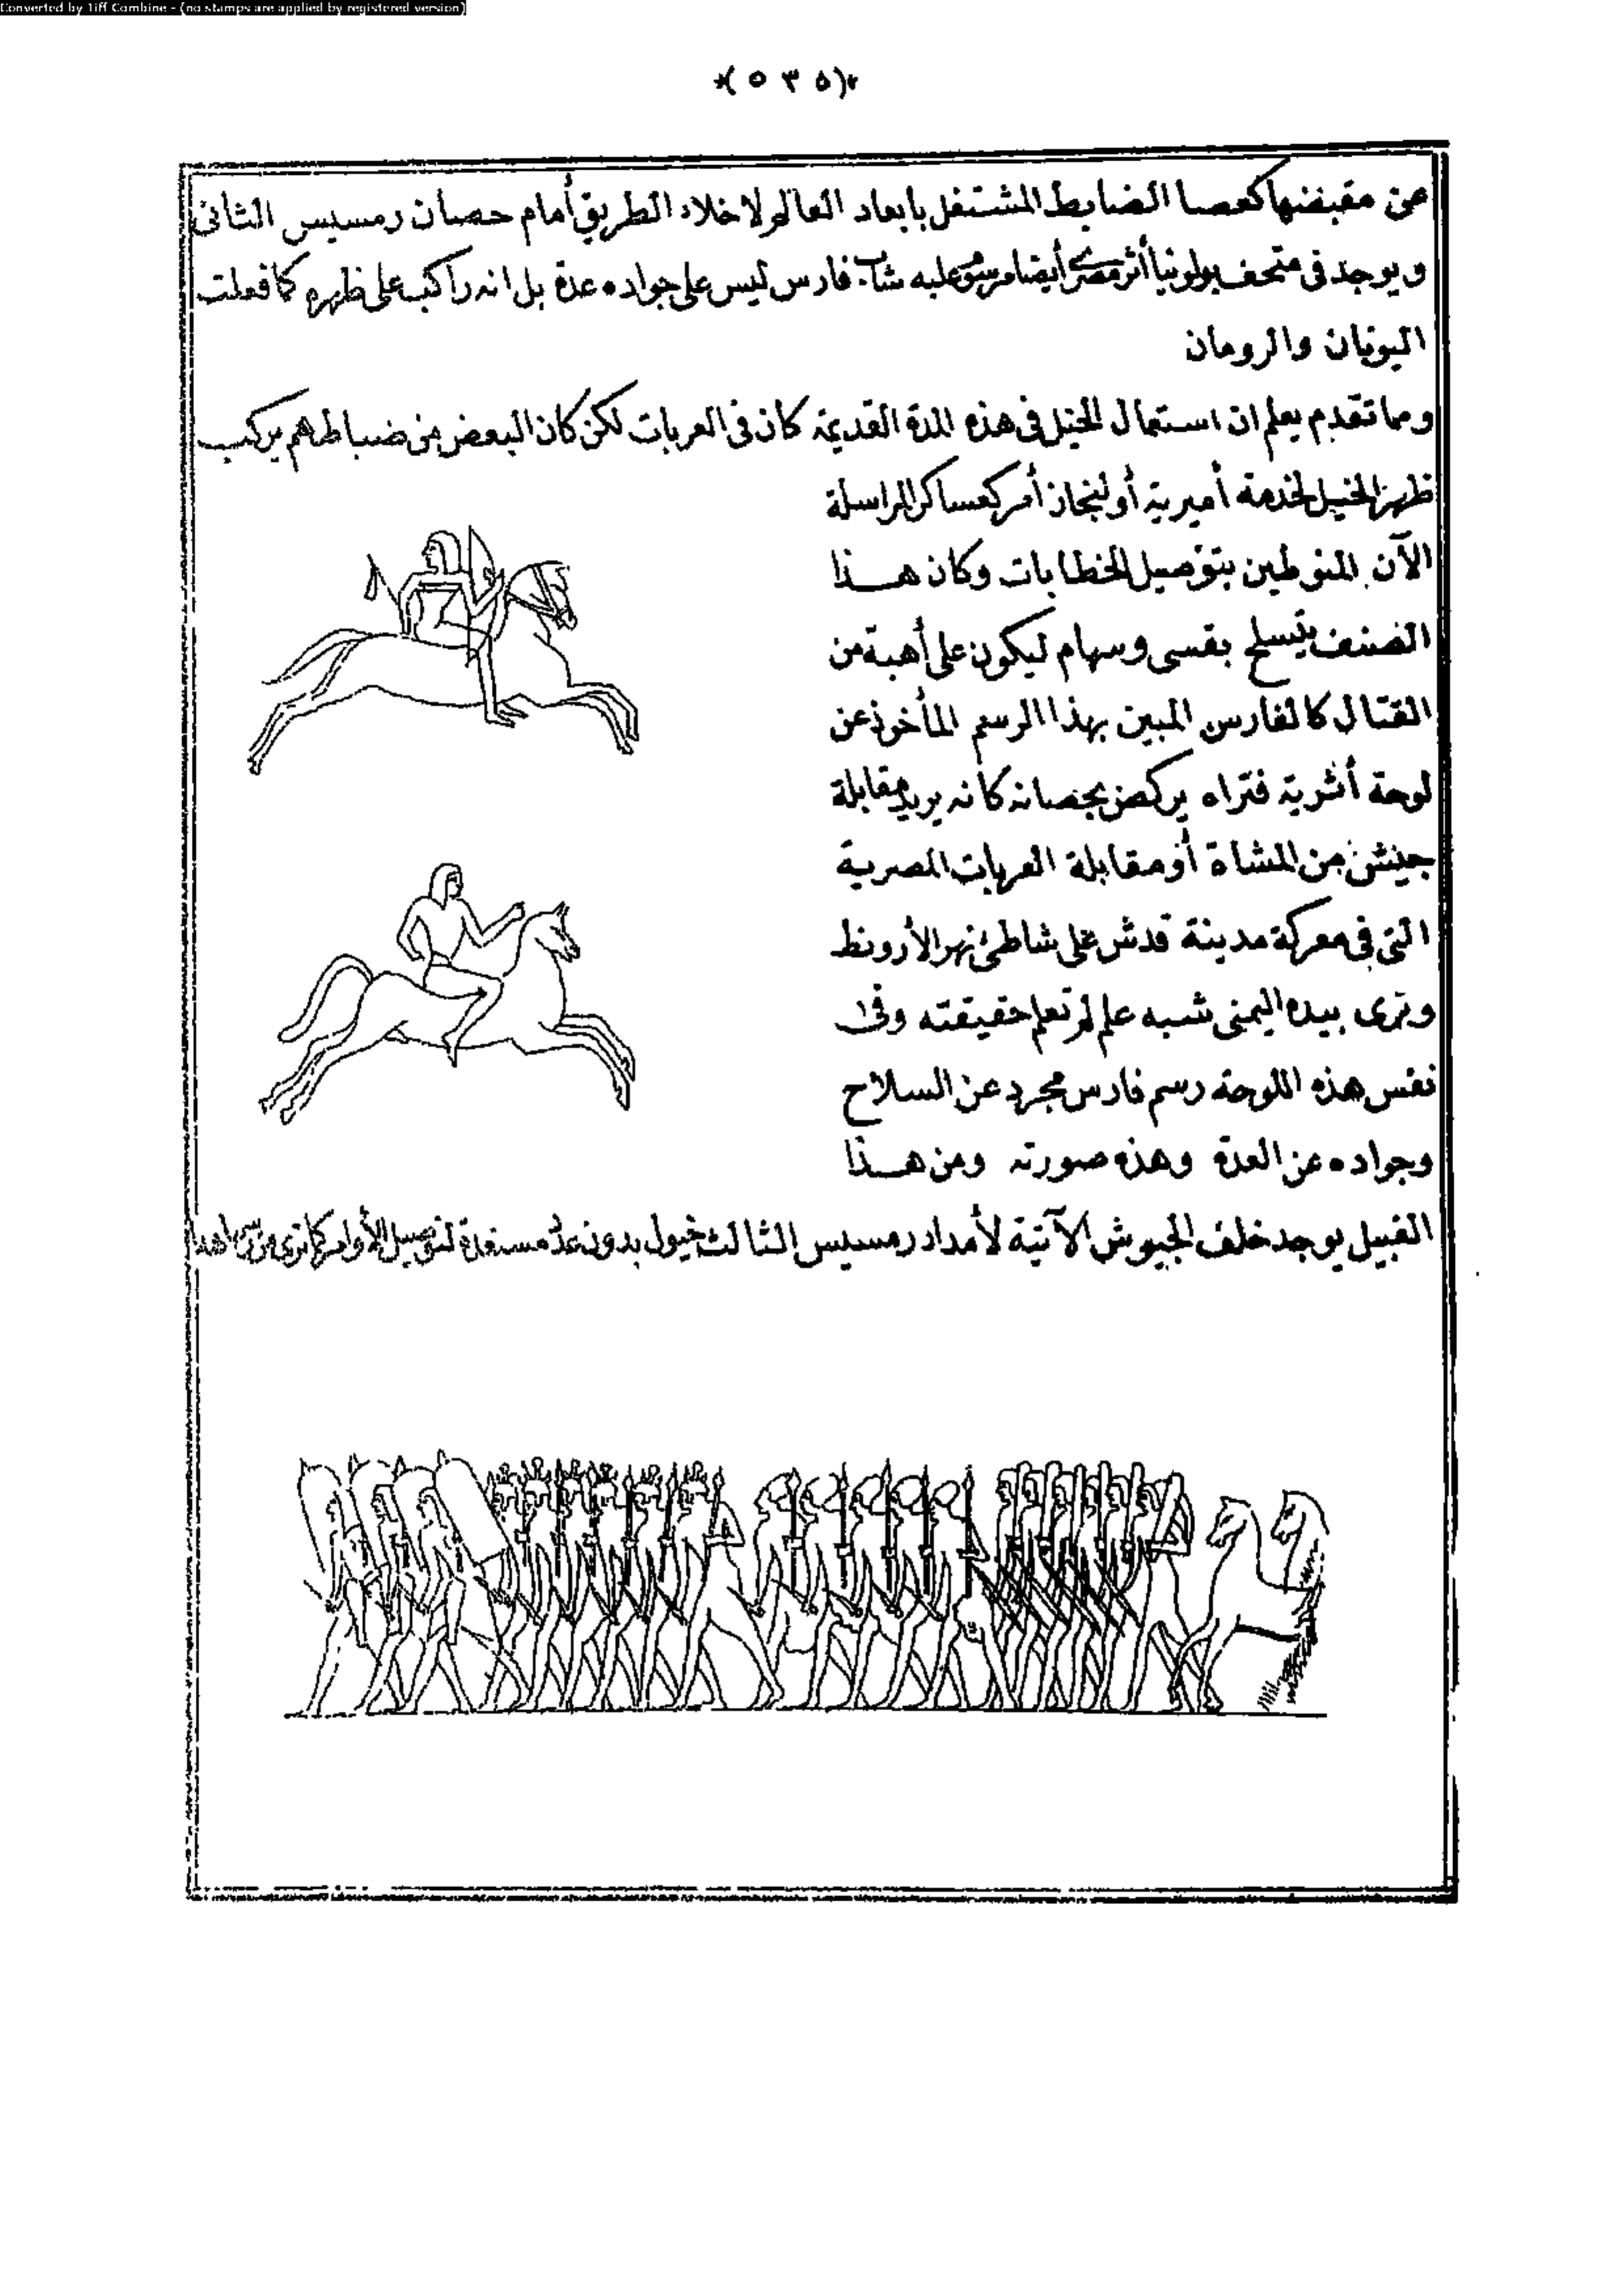 Converted by Tiff Combine - (no stamps are applied by registered version)
*(٥٣٥)*
عن مقبضها كعصا الضابط المشتغل بابعاد العالم لاخلاء الطريق أمام حصان رمسيس الثانى
ويوجد فى متحف بولونيا أثر مصرى أيضا مرسوم عليه شاب فارس ليس على جواده عدة بل انه راكب على ظهره كما فعلت
اليونان والرومان
ومما تقدم يعلم ان استعمال الخيل فى هذه المدة القديمة كان فى العربات لكن كان البعض من ضباطهم يركب
ظهر الخيل لخدمة أميرية أو لنجاز أمر كعساكر المراسلة
الآن المنوطين بتوصيل الخطابات وكان هـذا
الصنف يتسلح بقسى وسهام ليكون على أهبة من
القتال كالفارس المبين بهذا الرسم المأخوذ عن
لوحة أثرية فتراه يركض بحصانه كانه يريد مقابلة
جيش من المشاة أو مقابلة العربات المصرية
التى فى معركة مدينة قدش على شاطئ نهر الأرونط
وترى بيده اليمنى شبه علم لم تعلم حقيقته وفى
نفس هذه اللوحة رسم فارس مجرد عن السلاح
وجواده عن العدة وهذه صورته ومن هـذا
القبيل يوجد خلف الجيوش الآتية لأمداد رمسيس الثالث خيول بدون عدد مستعدة لتوصيل الأوامر كما ترى من